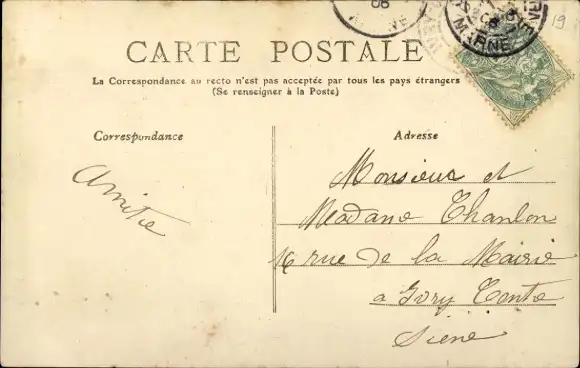 06
MARNE
19
CARTE POSTALE
La Correspondance au recto n'est pas acceptée par tous les pays étrangers
(Se renseigner à la Poste)
Correspondance
Adresse
Amitié
Monsieur et
Madame Thanlon
16 rue de la Mairie
a Ivry Cente
Siene